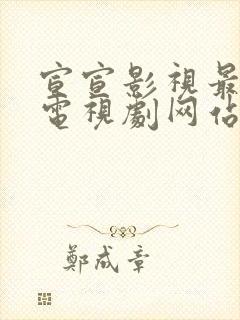 宣宣影視最
電視劇网佔
鄭成章